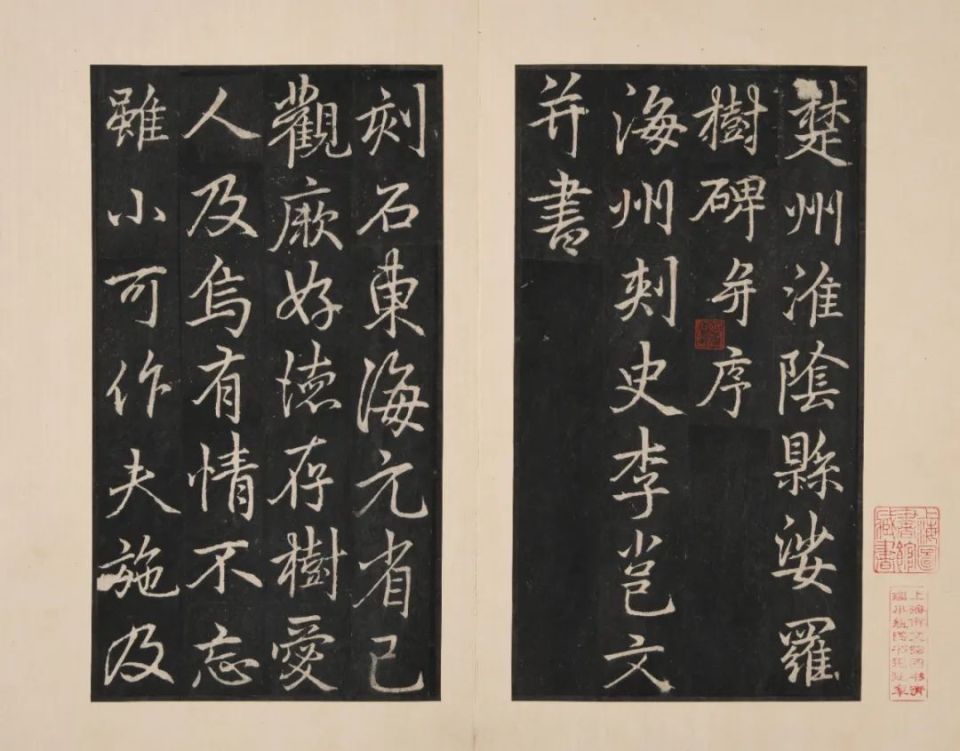 楚州淮陰縣娑羅
樹碑并序
海州刺史李邕文
并書
刻石東海元省已
觀厥好德存樹愛
人及烏有情不忘
雖小可作夫施及
上海圖
書館
藏書